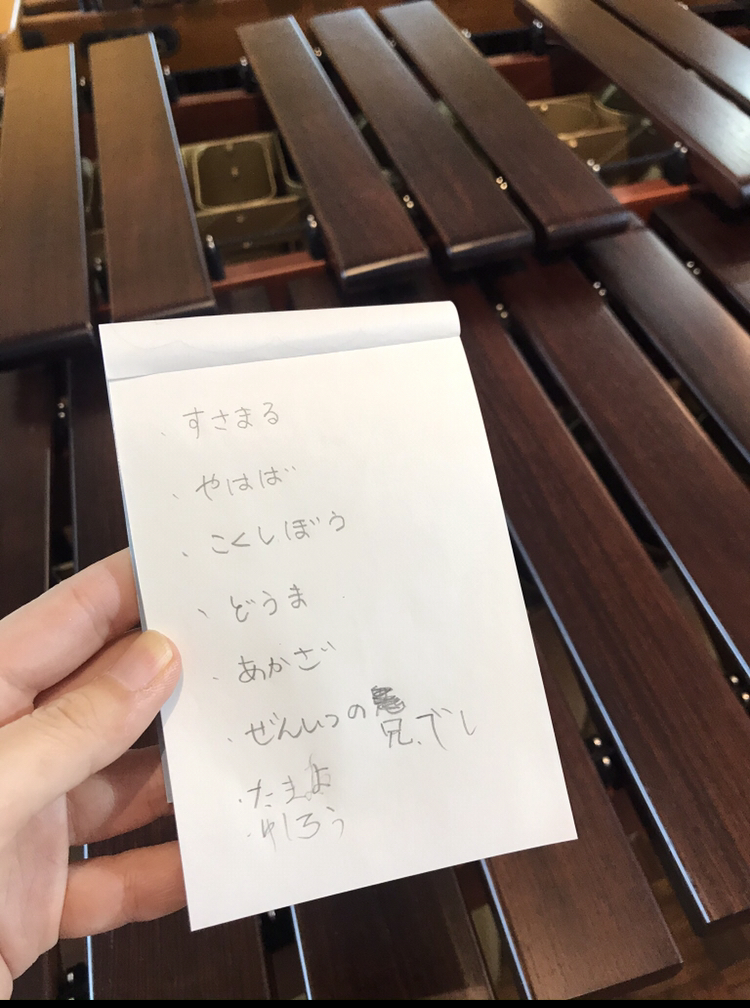 、すさまる
、やはば
、こくしぼう
、どうま
、あかざ
、ぜんいつの兄、でし
、たまよ
、ゆしろう